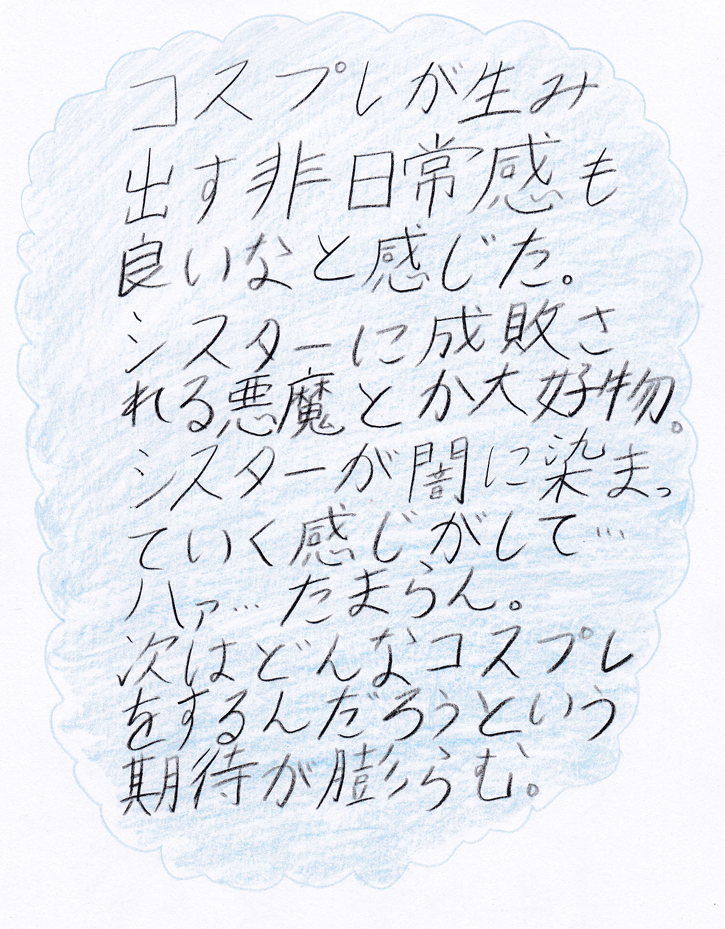 コスプレが生み
出す非日常感も
良いなと感じた。
シスターに成敗さ
れる悪魔とか大好物。
シスターが闇に染まっ
ていく感じがして…
ハァ…たまらん。
次はどんなコスプレ
をするんだろうという
期待が膨らむ。